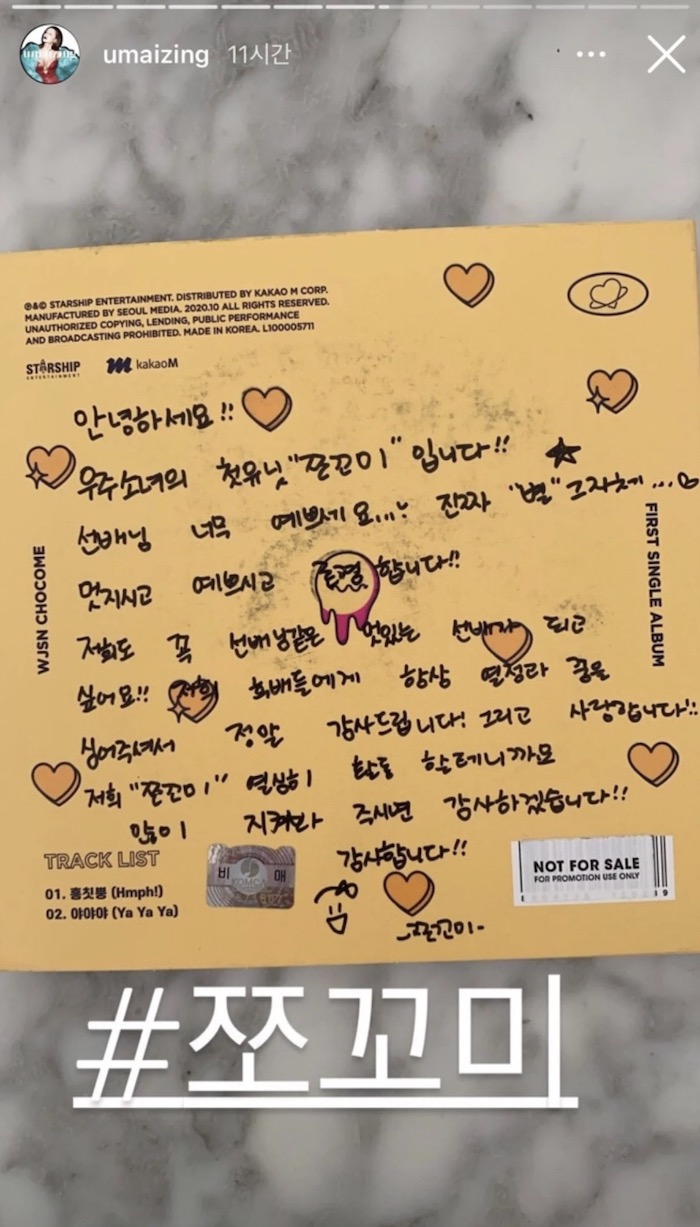 umaizing 11시간
℗&© STARSHIP ENTERTAINMENT. DISTRIBUTED BY KAKAO M CORP.
MANUFACTURED BY SEOUL MEDIA. 2020.10 ALL RIGHTS RESERVED.
UNAUTHORIZED COPYING, LENDING, PUBLIC PERFORMANCE
AND BROADCASTING PROHIBITED. MADE IN KOREA. L100005711
STARSHIP
ENTERTAINMENT
kakaoM
안녕하세요!!
우주소녀의 첫유닛 "쪼꼬미" 입니다!!
선배님 너무 예쁘세요... 진짜 "별" 그자체...
멋지시고 예쁘시고 존경 합니다!!
저희도 꼭 선배님같은 멋있는 선배가 되고
싶어요!! 저희 후배들에게 항상 열정과 꿈을
심어주셔서 정말 감사드립니다! 그리고 사랑합니다!!
저희 "쪼꼬미" 열심히 활동 할테니까요
많이 지켜봐 주시면 감사하겠습니다!!
감사합니다!!
-쪼꼬미-
WJSN CHOCOME
FIRST SINGLE ALBUM
TRACK LIST
01. 흥칫뿡 (Hmph!)
02. 야야야 (Ya Ya Ya)
비 매
KOMCA
NOT FOR SALE
FOR PROMOTION USE ONLY
#쪼꼬미